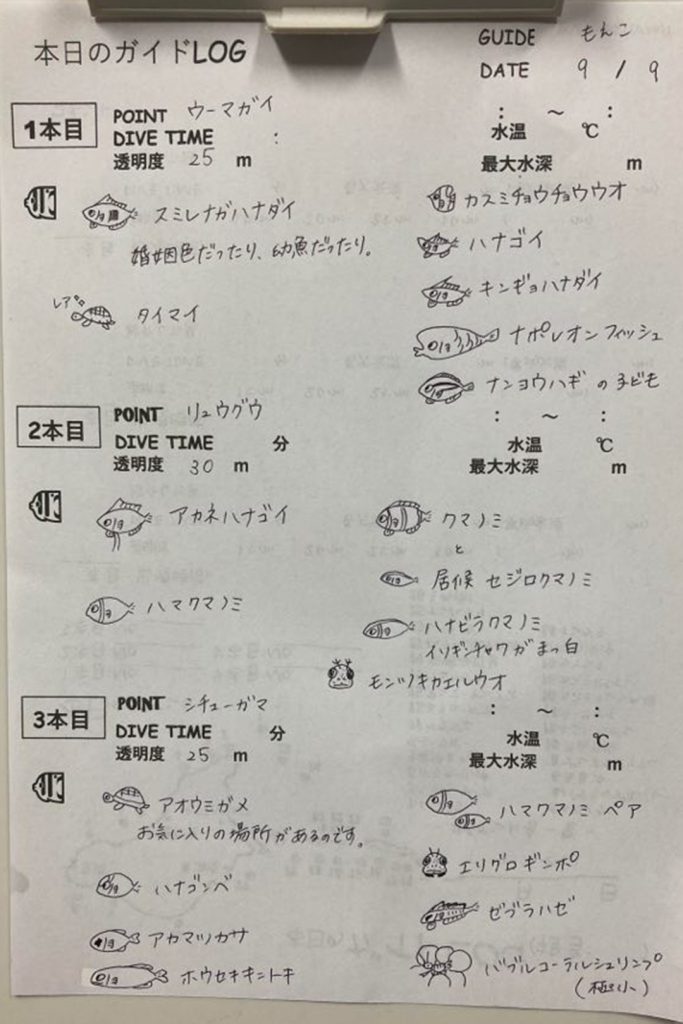 本日のガイドLOG
GUIDE もんこ
DATE 9 / 9
1本目
POINT ウーマガイ
DIVE TIME :
透明度 25 m
: ～ :
水温 ℃
最大水深 m
スミレナガハナダイ
婚姻色だったり、幼魚だったり。
レア
タイマイ
カスミチョウチョウウオ
ハナゴイ
キンギョハナダイ
ナポレオンフィッシュ
ナンヨウハギの子ども
2本目
POINT リュウグウ
DIVE TIME 分
透明度 30 m
: ～ :
水温 ℃
最大水深 m
アカネハナゴイ
ハマクマノミ
クマノミ
と
居候 セジロクマノミ
ハナビラクマノミ
イソギンチャクがまっ白
モンツキカエルウオ
3本目
POINT シチューガマ
DIVE TIME 分
透明度 25 m
: ～ :
水温 ℃
最大水深 m
アオウミガメ
お気に入りの場所があるのです。
ハナゴンベ
アカマツカサ
ホウセキキントキ
ハマクマノミ ペア
エリグロギンポ
ゼブラハゼ
バブルコーラルシュリンプ
(極小)